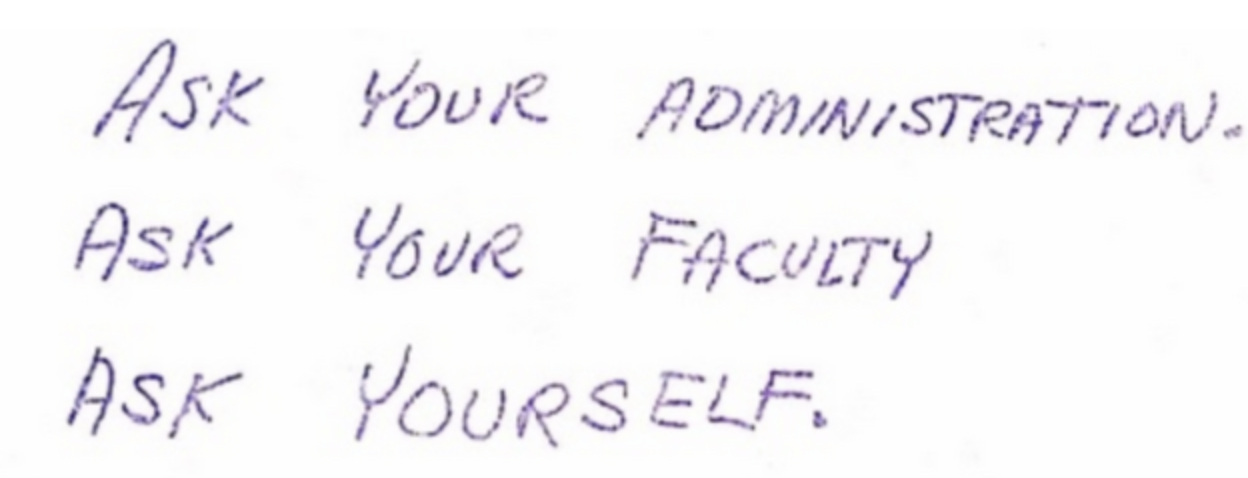 ASK YOUR ADMINISTRATION.
ASK YOUR FACULTY
ASK YOURSELF.